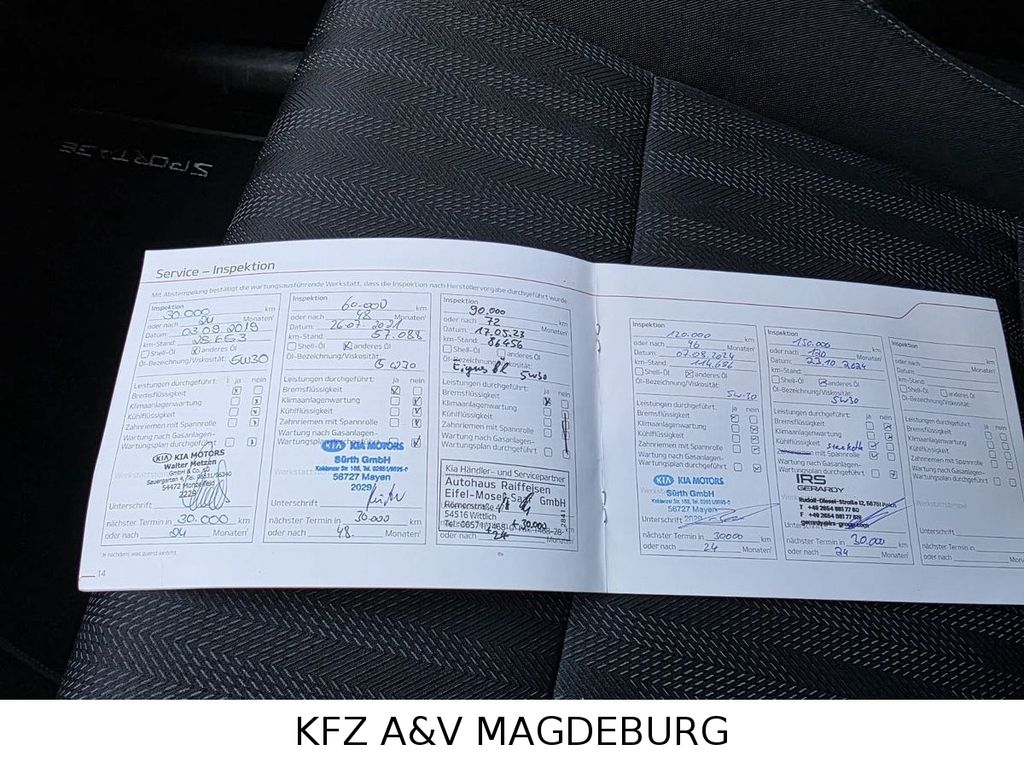 SPORTAGE
Service – Inspektion
Mit Abstempelung bestätigt die wartungsausführende Werkstatt, dass die Inspektion nach Herstellervorgabe durchgeführt wurde.
Inspektion
30.000 km
oder nach 24 Monaten¹
Datum: 03.09.2019
km-Stand:
Shell-Öl anderes Öl
Öl-Bezeichnung/Viskosität: 5W30
Leistungen durchgeführt: ja nein
Bremsflüssigkeit
Klimaanlagenwartung
Kühlflüssigkeit
Zahnriemen mit Spannrolle
Wartung nach Gasanlagen-
Wartungsplan durchgeführt
KIA MOTORS
Walter Metzen
GmbH & Co. KG
54472 Monzelfeld
2229
Unterschrift
nächster Termin in 30.000 km
oder nach 24 Monaten¹
¹ Je nachdem, was zuerst eintritt.
14
Inspektion
60.000 km
oder nach 48 Monaten¹
Datum: 26.07.2021
km-Stand: 57.088
Shell-Öl anderes Öl
Öl-Bezeichnung/Viskosität:
Leistungen durchgeführt: ja nein
Bremsflüssigkeit
Klimaanlagenwartung
Kühlflüssigkeit
Zahnriemen mit Spannrolle
Wartung nach Gasanlagen-
Wartungsplan durchgeführt
KIA MOTORS
Sürth GmbH
Koblenzer Str. 188, Tel. 02651/9595-0
56727 Mayen
2029
Unterschrift
nächster Termin in 30.000 km
oder nach 48 Monaten¹
Inspektion
90.000 km
oder nach 72 Monaten¹
Datum: 17.05.23
km-Stand: 86456
Shell-Öl anderes Öl
Öl-Bezeichnung/Viskosität:
5W30
Leistungen durchgeführt: ja nein
Bremsflüssigkeit
Klimaanlagenwartung
Kühlflüssigkeit
Zahnriemen mit Spannrolle
Wartung nach Gasanlagen-
Wartungsplan durchgeführt
Kia Händler- und Servicepartner
Autohaus Raiffeisen
Eifel-Mosel-Saar GmbH
Römerstraße
54516 Wittlich
+ 30.000
24
Inspektion
120.000 km
oder nach 96 Monaten¹
Datum: 07.08.2024
km-Stand: 114.686
Shell-Öl anderes Öl
Öl-Bezeichnung/Viskosität:
5W-30
Leistungen durchgeführt: ja nein
Bremsflüssigkeit
Klimaanlagenwartung
Kühlflüssigkeit
Zahnriemen mit Spannrolle
Wartung nach Gasanlagen-
Wartungsplan durchgeführt
KIA MOTORS
Sürth GmbH
Koblenzer Str. 188, Tel. 02651/9595-0
56727 Mayen
2029
Unterschrift
nächster Termin in 30000 km
oder nach 24 Monaten¹
Inspektion
150.000 km
oder nach 120 Monaten¹
Datum: 22.10.2024
km-Stand:
Shell-Öl anderes Öl
Öl-Bezeichnung/Viskosität:
5W30
Leistungen durchgeführt: ja nein
Bremsflüssigkeit
Klimaanlagenwartung
Kühlflüssigkeit Steuerkette
mit Spannrolle
Wartung nach Gasanlagen-
Wartungsplan durchgeführt
IRS
GERARDY
Rudolf-Diesel-Straße 12, 56751 Polch
T +49 2654 881 77 80
Unterschrift
nächster Termin in 30.000 km
oder nach 24 Monaten¹
Inspektion
oder nach Monaten¹
Datum:
km-Stand:
Shell-Öl anderes Öl
Öl-Bezeichnung/Viskosität:
Leistungen durchgeführt: ja nein
Bremsflüssigkeit
Klimaanlagenwartung
Kühlflüssigkeit
Zahnriemen mit Spannrolle
Wartung nach Gasanlagen-
Wartungsplan durchgeführt
Werkstattstempel
Unterschrift
nächster Termin in
oder nach
KFZ A&V MAGDEBURG